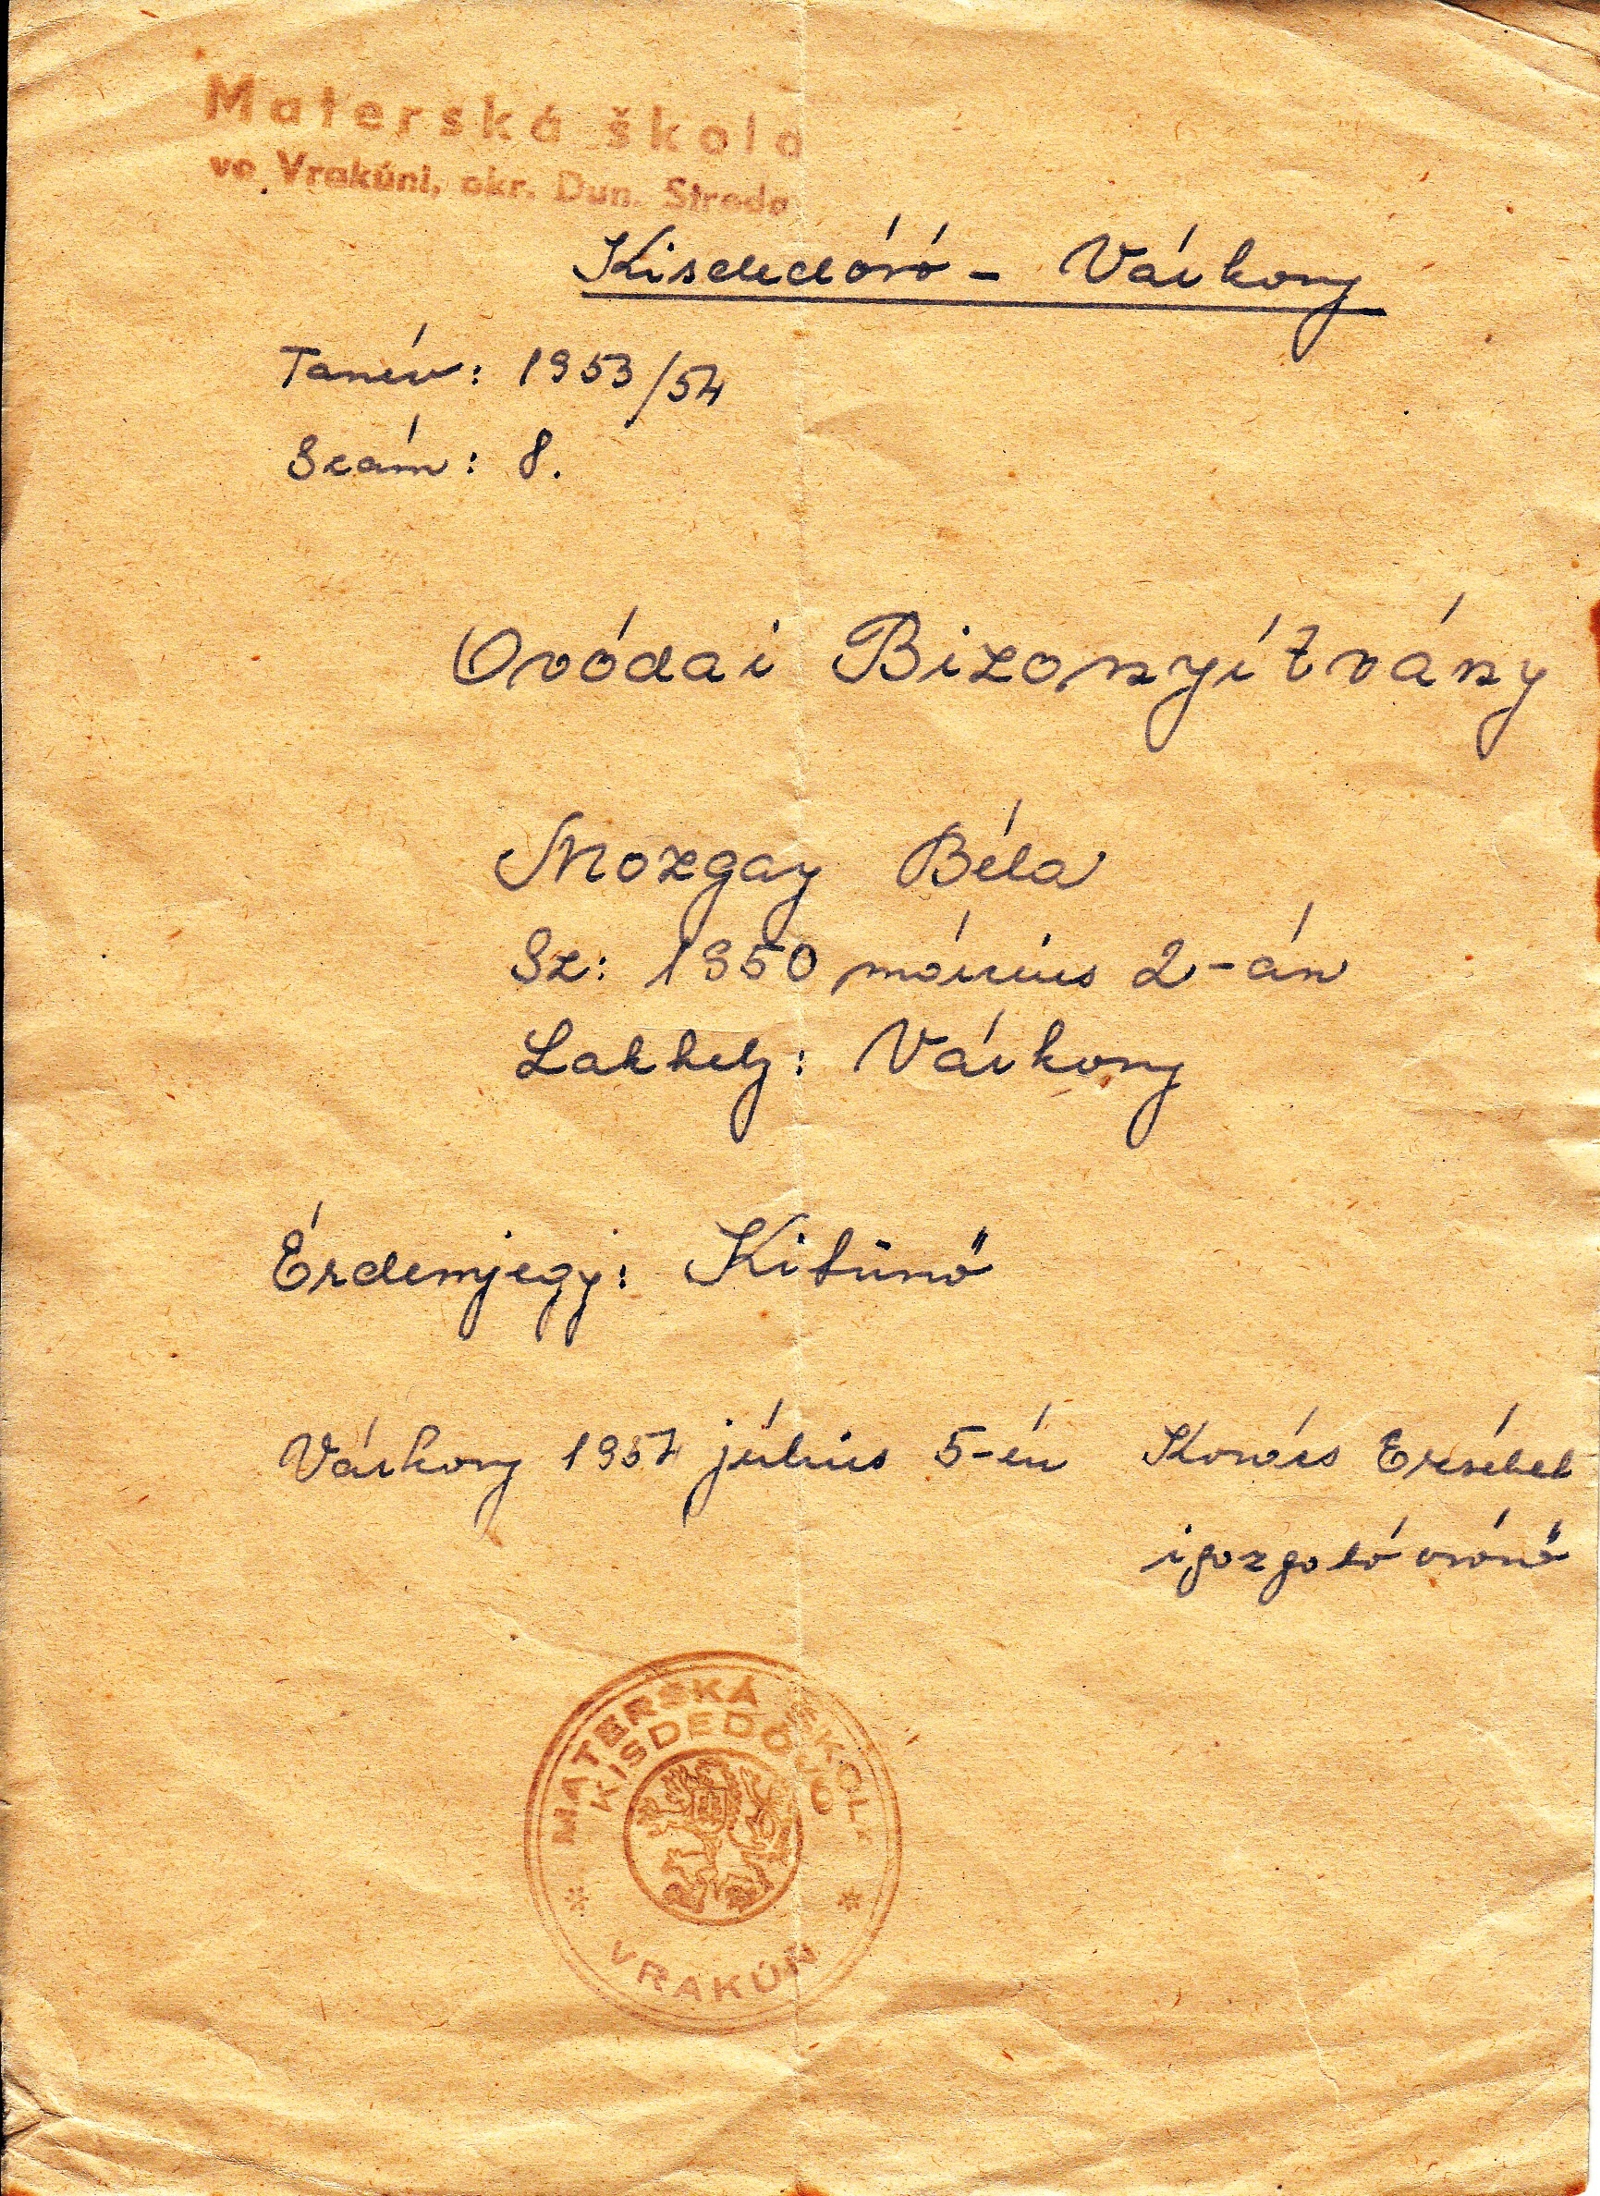 Materská škola
vo Vrakúni, okr. Dun. Streda
Kisdedóvó - Várkony
Tanév: 1953/54
Szám: 8.
Ovódai Bizonyítvány
Mozgay Béla
Sz: 1950 március 2-án
Lakhely: Várkony
Érdemjegy: Kitünő
Várkony 1954 július 5-én Kovács Erzsébet
igazgató óvónő
MATERSKÁ ŠKOLA
KISDEDÓVÓ
* VRAKÚŇ *